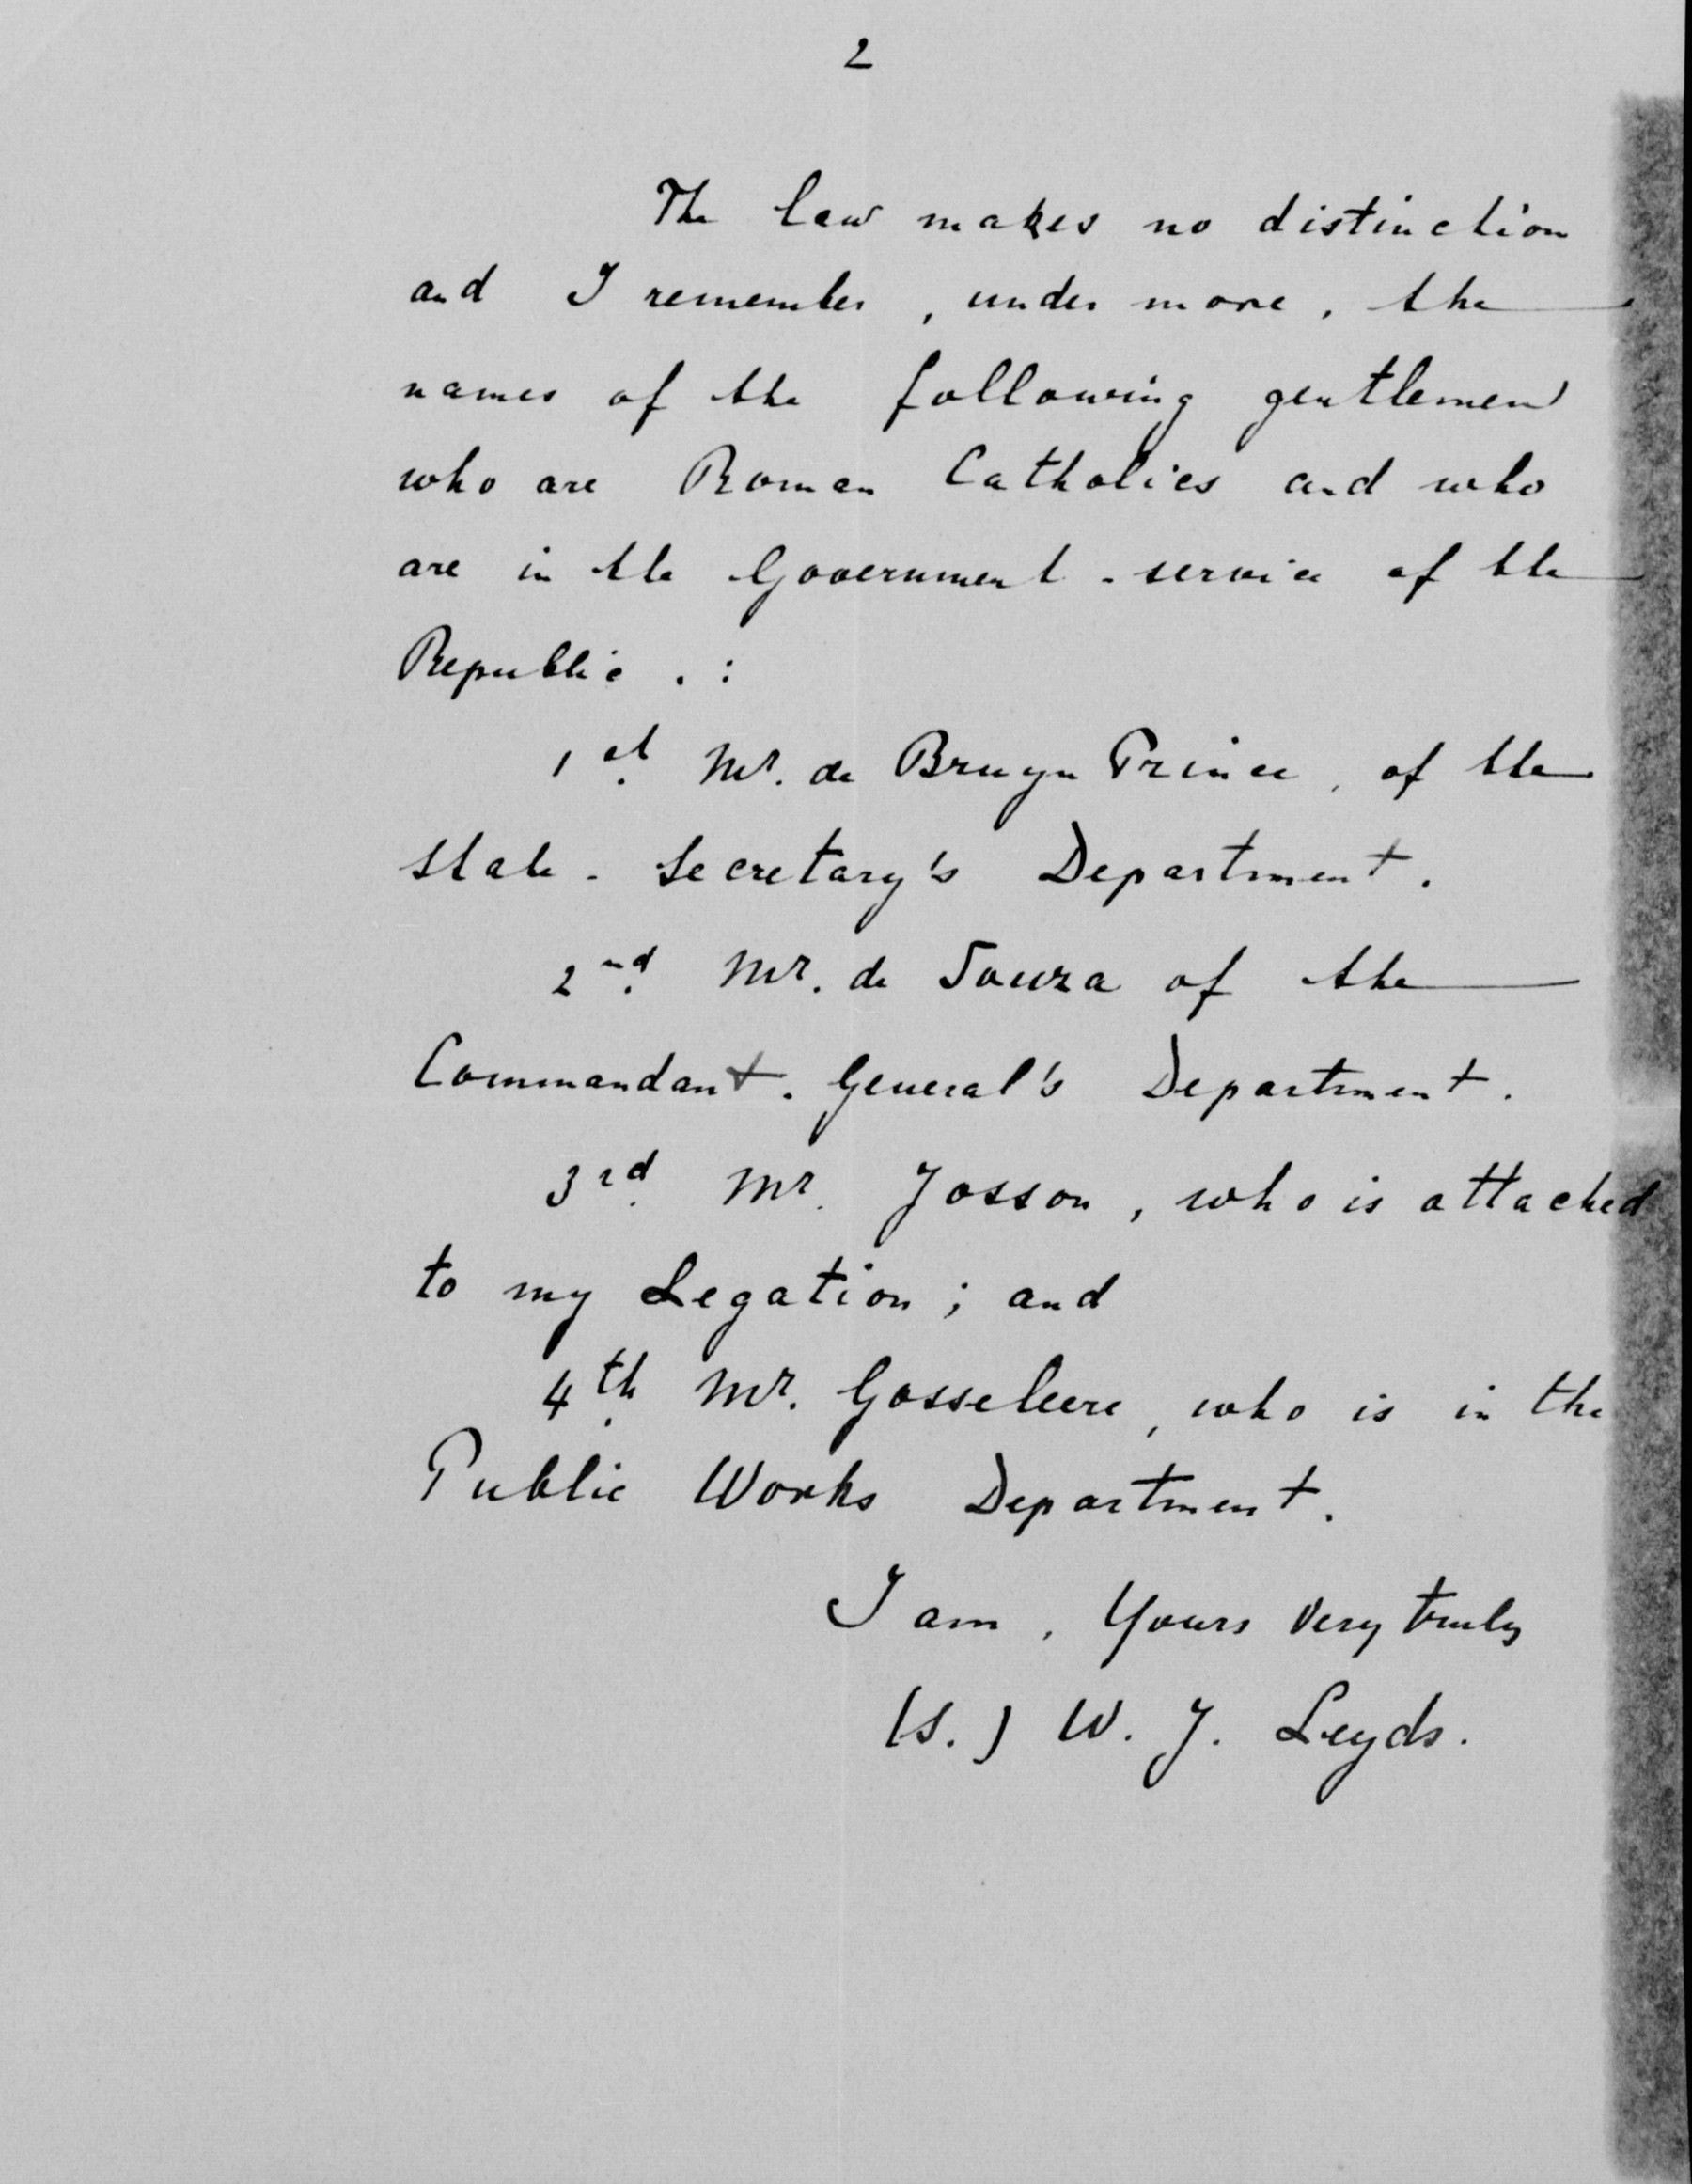 2
The law makes no distinction
and I remember, under more, the
names of the following gentlemen
who are Roman Catholics and who
are in the Government-service of the
Republic.:
1st Mr. de Bruyn Prince, of the
State-Secretary's Department.
2nd Mr. de Souza of the
Commandant-General's Department.
3rd Mr. Josson, who is attached
to my Legation; and
4th Mr. Gosseleere, who is in the
Public Works Department.
I am, Yours very truly
(S.) W. J. Leyds.